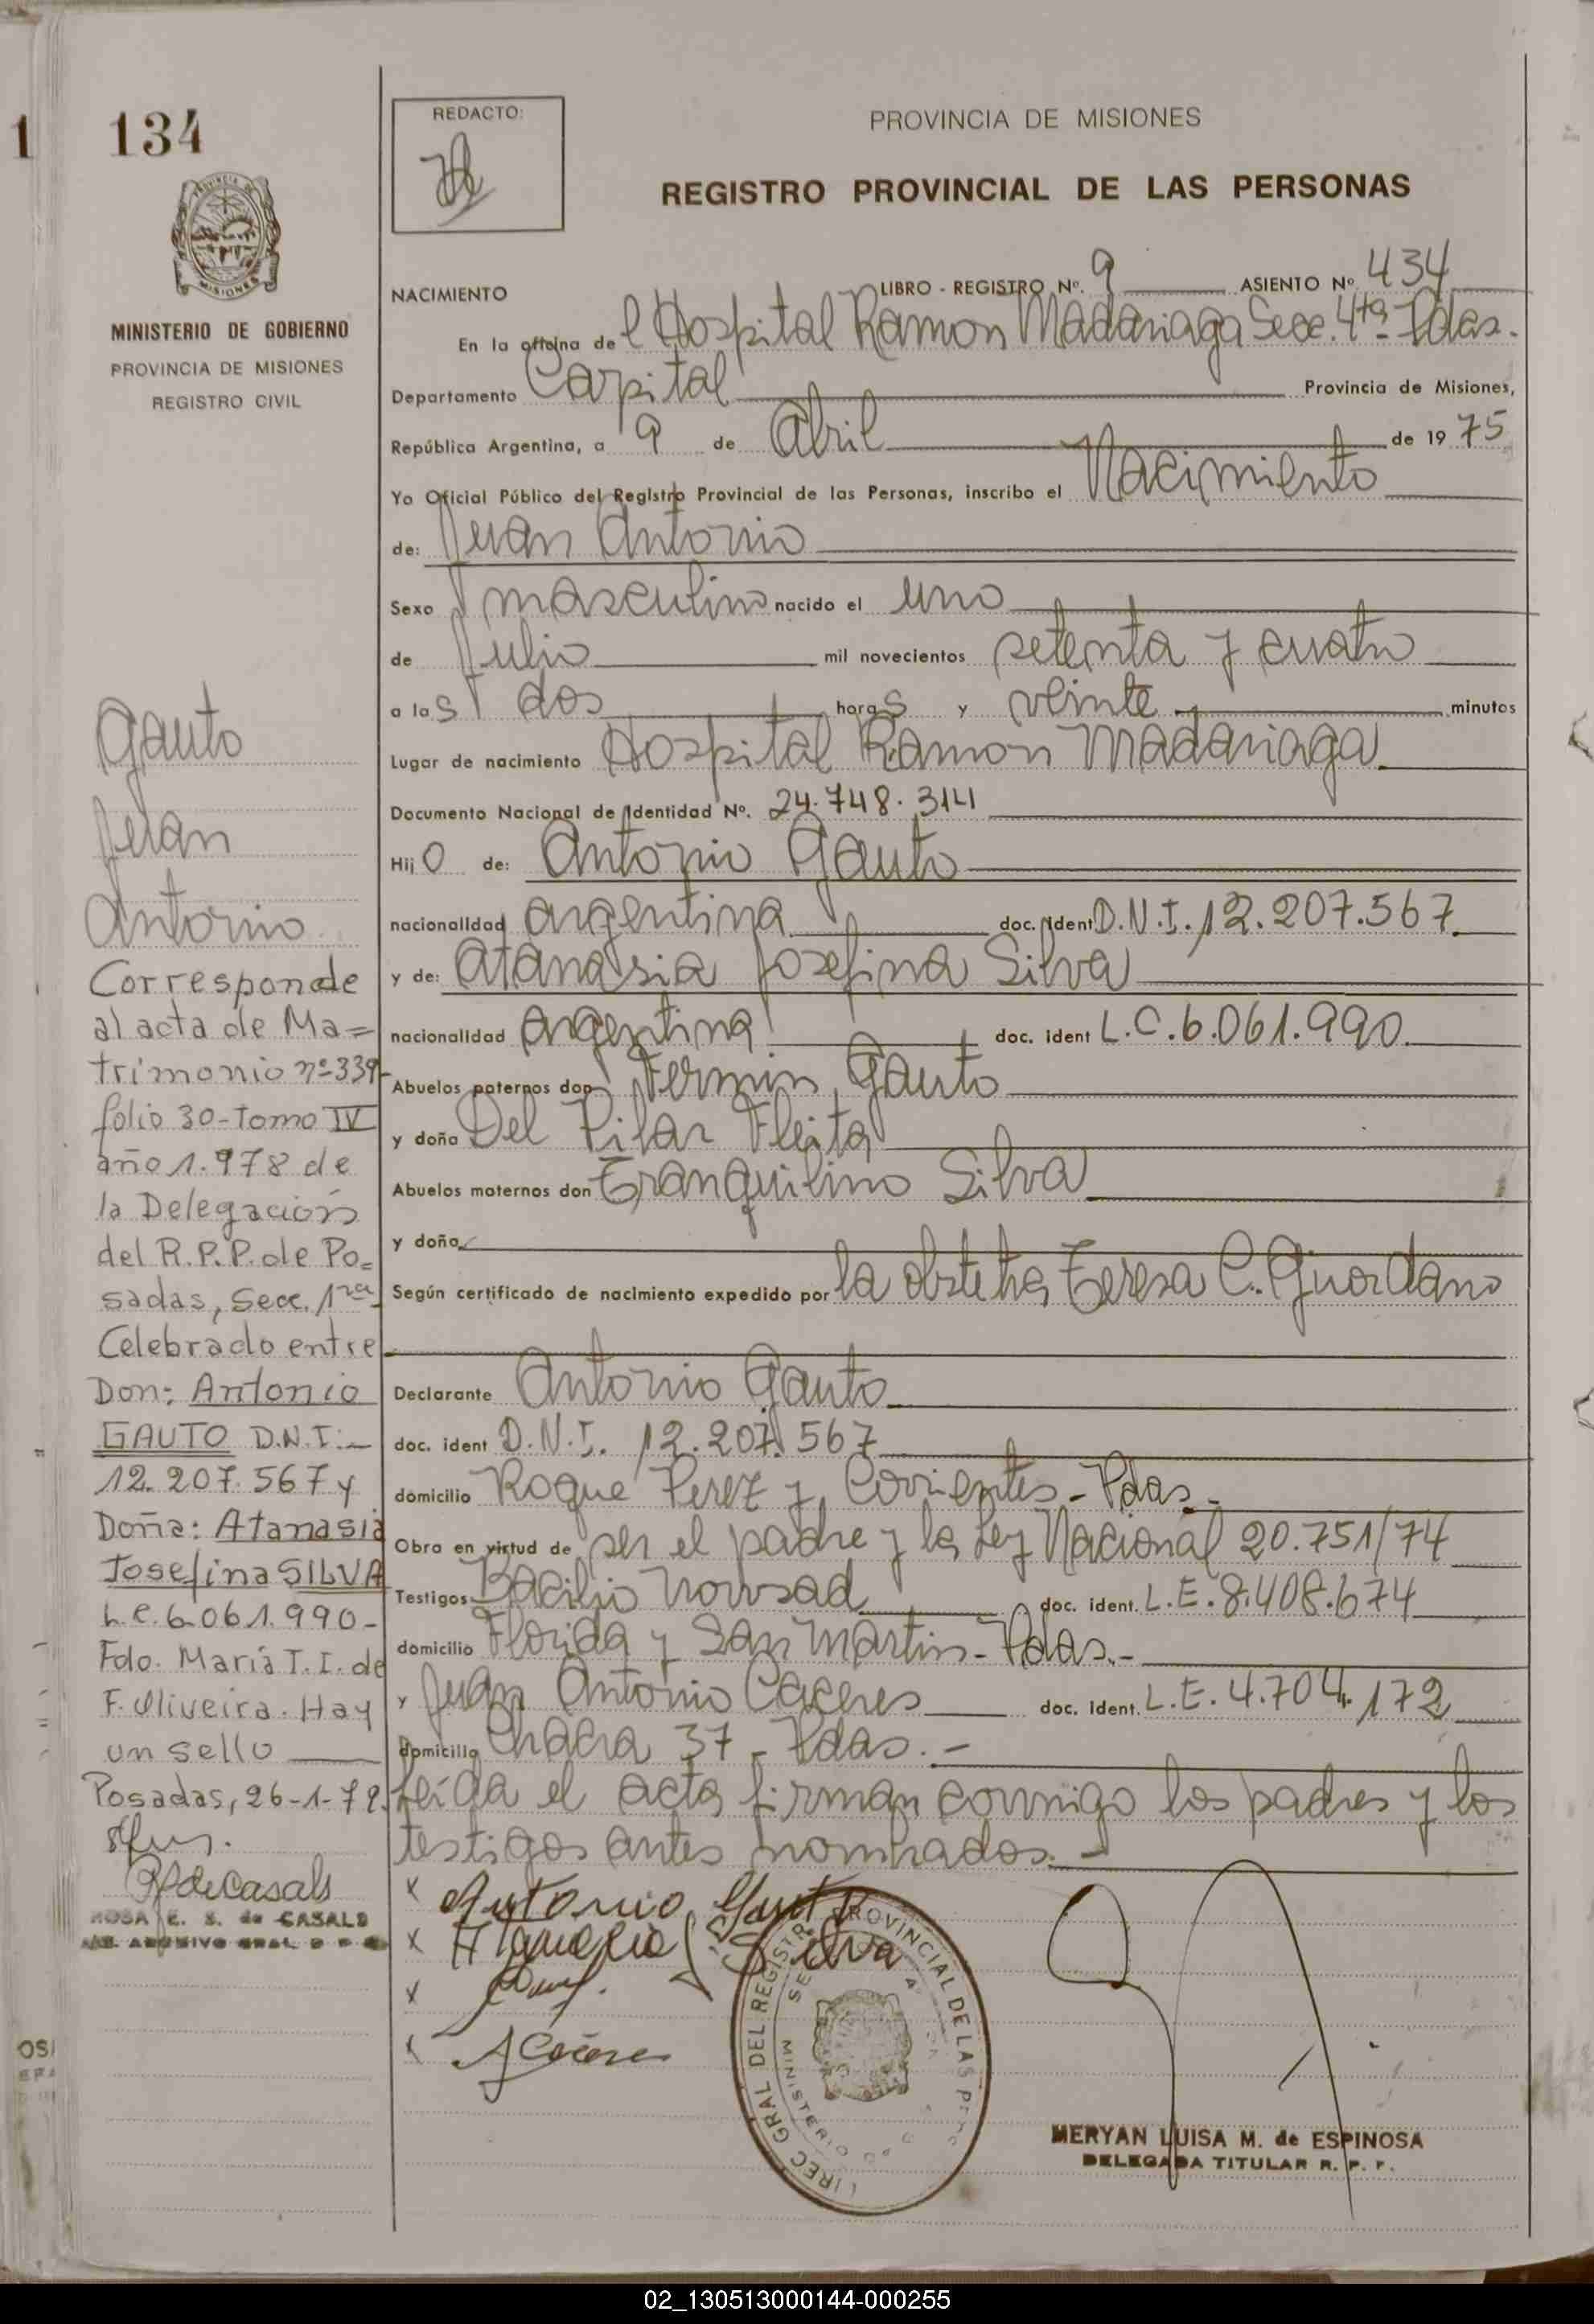 1
134
REDACTO:
PROVINCIA DE MISIONES
REGISTRO PROVINCIAL DE LAS PERSONAS
MISIONES
MINISTERIO DE GOBIERNO
PROVINCIA DE MISIONES
REGISTRO CIVIL
NACIMIENTO LIBRO - REGISTRO Nº. 9 ASIENTO Nº 434
En la oficina de l Hospital Ramon Madariaga Secc. 4ta Pdas.
Departamento Capital Provincia de Misiones,
República Argentina, a 9 de Abril de 19 75
Yo Oficial Público del Registro Provincial de las Personas, inscribo el Nacimiento
de: Juan Antonio
Sexo masculino nacido el uno
de Julio mil novecientos setenta y cuatro
a las dos horas y veinte minutos
Lugar de nacimiento Hospital Ramon Madariaga.
Documento Nacional de Identidad Nº. 24.748.314
Hijo de: Antonio Gauto
nacionalidad argentina doc. ident D.N.I. 12.207.567
y de: Atanasia Josefina Silva
nacionalidad argentina doc. ident L.C.6.061.990.
Abuelos paternos don Fermin Gauto
y doña Del Pilar Fleita
Abuelos maternos don Tranquilino Silva
y doña
Según certificado de nacimiento expedido por la obstetra Teresa C. Giuordano
Declarante Antonio Gauto
doc. ident D.N.I. 12.207.567
domicilio Roque Perez y Corrientes - Pdas.-
Obra en virtud de ser el padre y la Ley Nacional 20.751/74
Testigos Bacilio Nowsad doc. ident. L.E.8.408.674
domicilio Florida y San Martin - Pdas.-
y Juan Antonio Caceres doc. ident. L.E.4.704.172
domicilio Chacra 37 - Pdas.-
Leida el acta firman conmigo los padres y los
testigos antes nombrados.-
Gauto
Juan
Antonio
Corresponde
al acta de Ma=
trimonio nº 339-
folio 30-tomo IV
año 1.978 de
la Delegación
del R.P.P. de Po=
sadas, Secc. 1ra
Celebrado entre
Don: Antonio
GAUTO D.N.I:-
12.207.567 y
Doña: Atanasia
Josefina SILVA
L.C.6.061.990-
Fdo. María T. I. de
F. Oliveira. Hay
un sello
Posadas, 26-1-79.
R. de Casals
ROSA E. S. de CASALS
x Antonio Gauto
x Atanasia J. Silva
x
x A Caceres
DIREC GRAL DEL REGISTRO PROVINCIAL DE LAS PERS
MINISTERIO
MERYAN LUISA M. de ESPINOSA
DELEGADA TITULAR R. P. P.
02_130513000144-000255